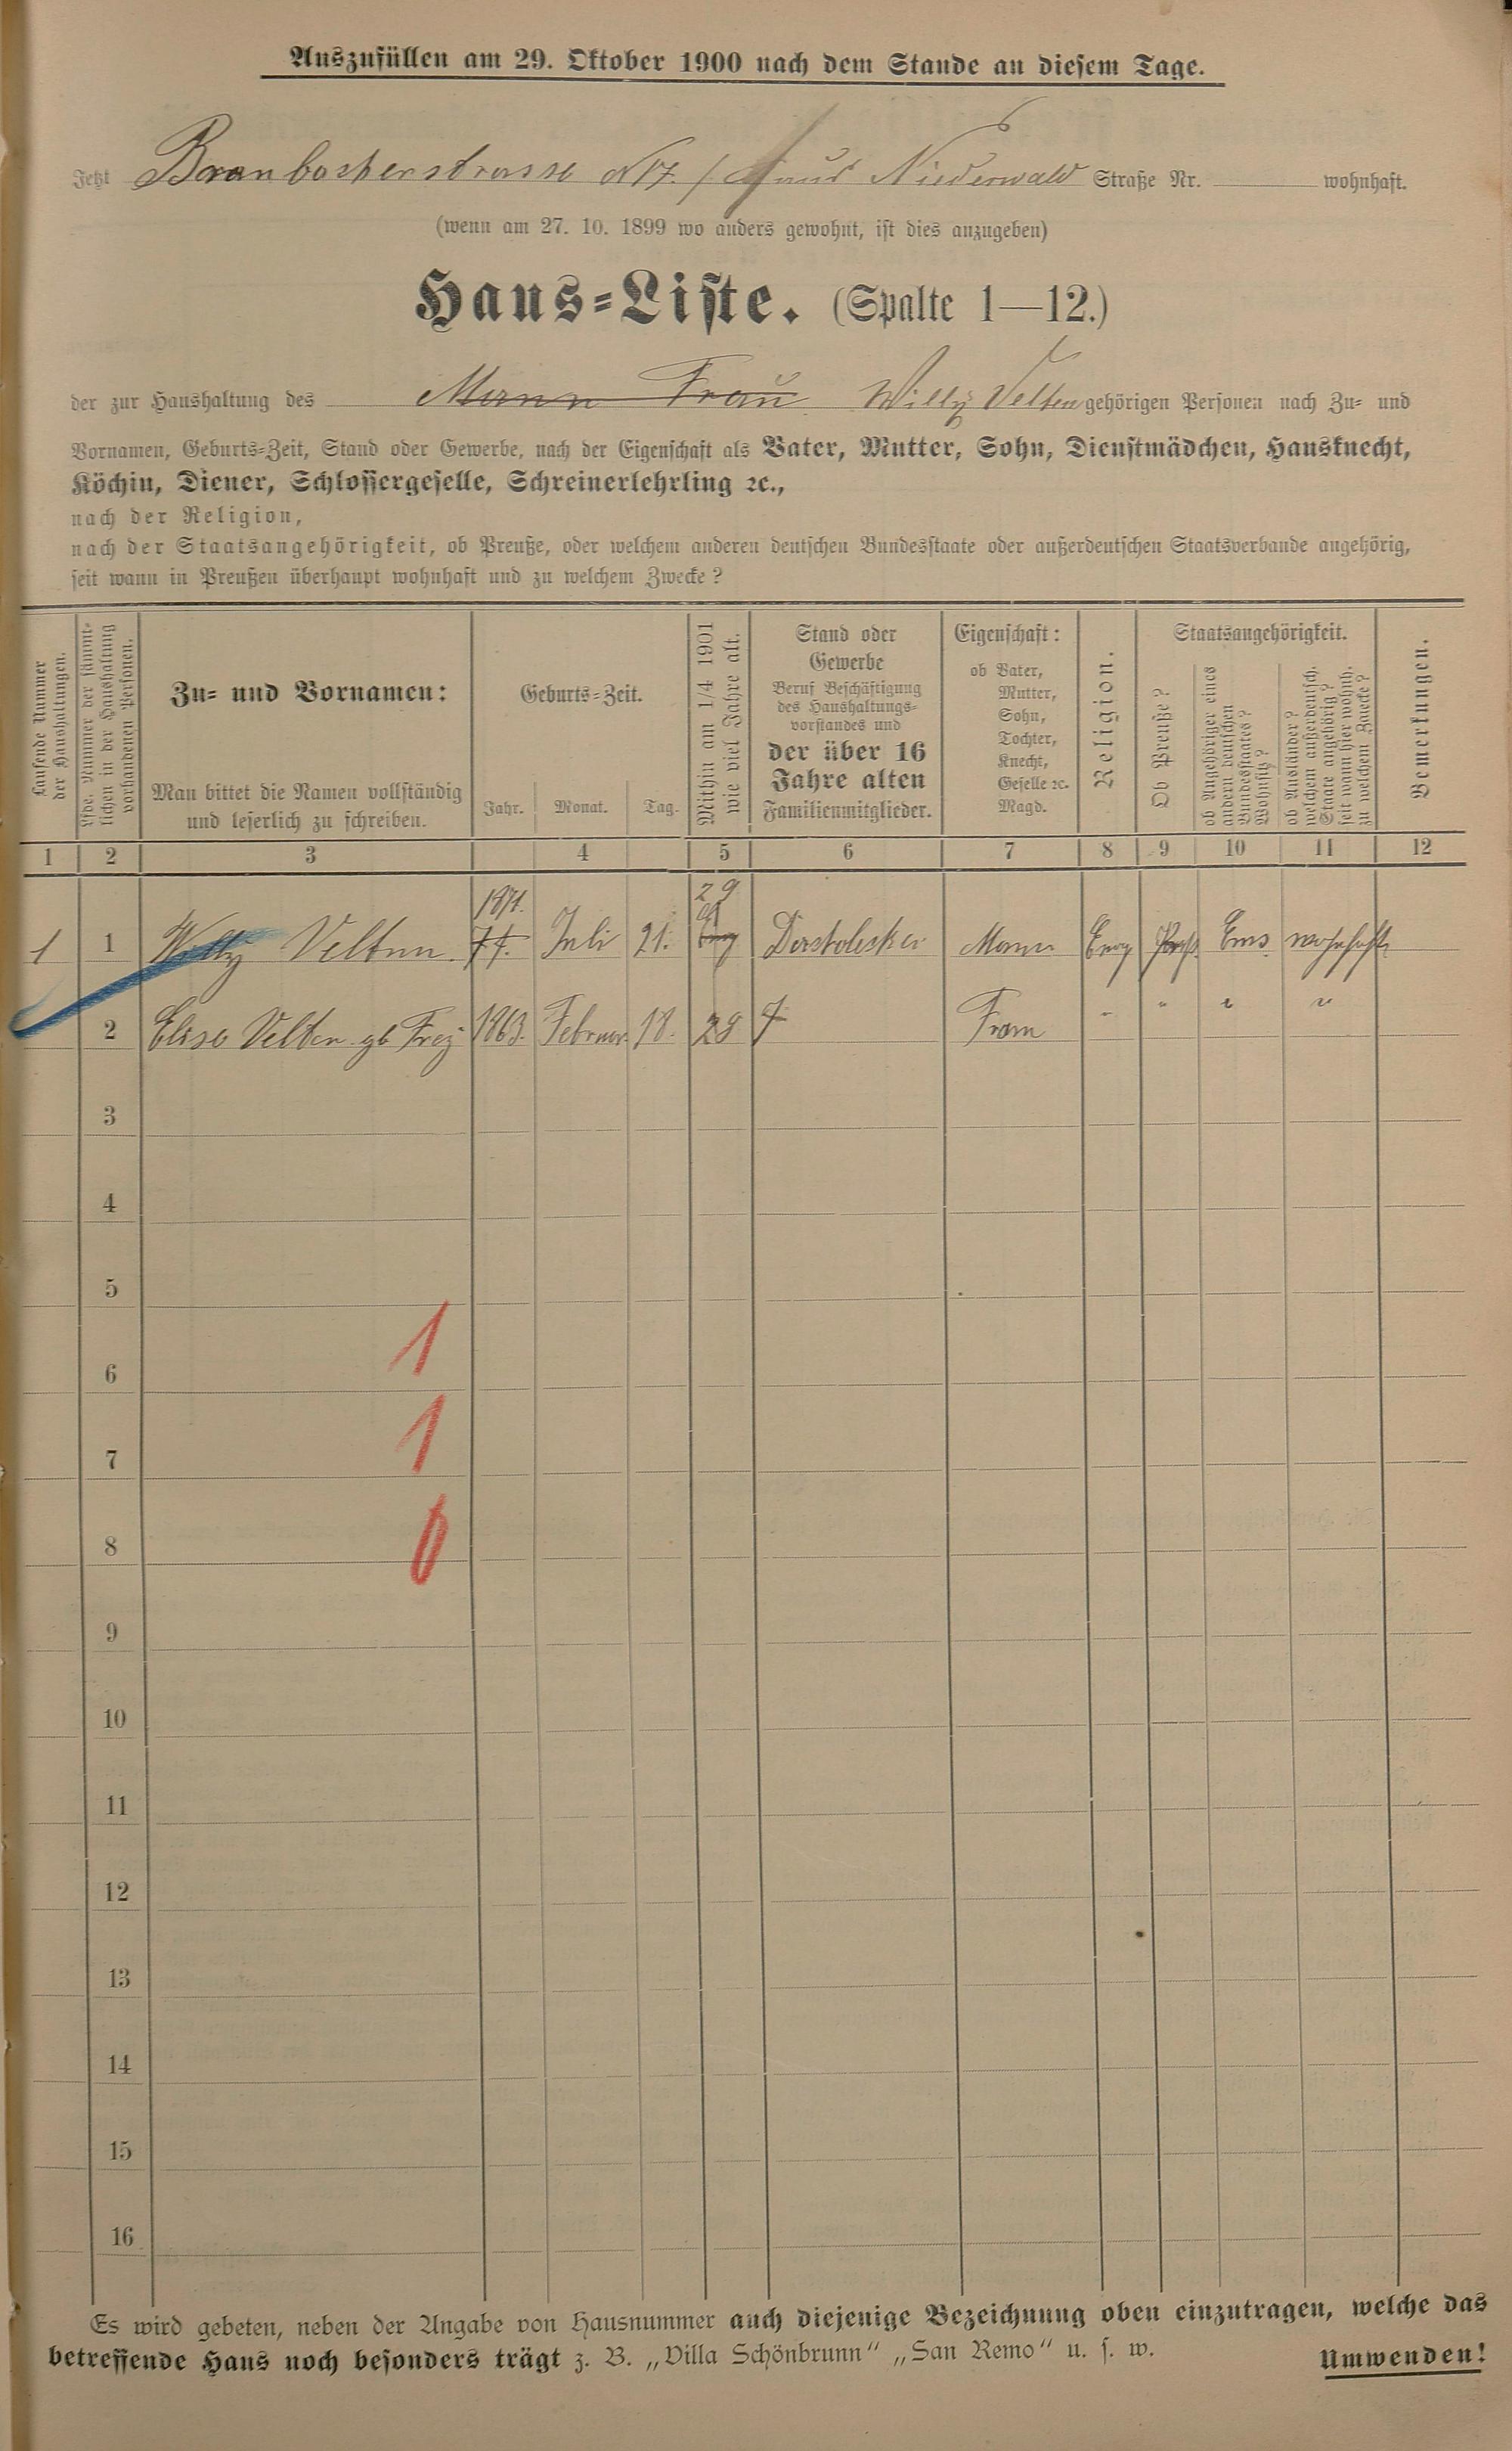 Auszufüllen am 29. Oktober 1900 nach dem Stande an diesem Tage.
Jetzt Braubacherstrasse N 17. / Haus Niederwald Straße Nr. wohnhaft.
(wenn am 27. 10. 1899 wo anders gewohnt, ist dies anzugeben)
Haus-Liste. (Spalte 1—12.)
der zur Haushaltung des Mann Frau Willy Velten gehörigen Personen nach Zu- und
Vornamen, Geburts-Zeit, Stand oder Gewerbe, nach der Eigenschaft als Vater, Mutter, Sohn, Dienstmädchen, Hausknecht,
Köchin, Diener, Schlossergeselle, Schreinerlehrling ꝛc.,
nach der Religion,
nach der Staatsangehörigkeit, ob Preuße, oder welchem anderen deutschen Bundesstaate oder außerdeutschen Staatsverbande angehörig,
seit wann in Preußen überhaupt wohnhaft und zu welchem Zwecke?
Laufende Nummer
der Haushaltungen.
Lfde. Nummer der sämmt-
lichen in der Haushaltung
vorhandenen Personen.
Zu- und Vornamen:
Man bittet die Namen vollständig
und leserlich zu schreiben.
Geburts-Zeit.
Jahr. Monat. Tag.
Mithin am 1/4 1901
wie viel Jahre alt.
Stand oder
Gewerbe
Beruf Beschäftigung
des Haushaltungs-
vorstandes und
der über 16
Jahre alten
Familienmitglieder.
Eigenschaft:
ob Vater,
Mutter,
Sohn,
Tochter,
Knecht,
Geselle ꝛc.
Magd.
Religion.
Staatsangehörigkeit.
Ob Preuße?
ob Angehöriger eines
andern deutschen
Bundesstaates?
Wohnsitz?
ob Ausländer?
welchem außerdeutsch.
Staate angehörig?
seit wann hier wohnh.
zu welchem Zwecke?
Bemerkungen.
1 2 3 4 5 6 7 8 9 10 11 12
1871. 29
1 1 Willy Velten. 71. Juli 21. Mann Evg Ems wohnhaft
2 Elise Velten gb Frey 1863. Februar 18. Frau " " " "
3
4
5
1
6
1
7
0
8
9
10
11
12
13
14
15
16
Es wird gebeten, neben der Angabe von Hausnummer auch diejenige Bezeichnung oben einzutragen, welche das
betreffende Haus noch besonders trägt z. B. „Villa Schönbrunn“ „San Remo“ u. s. w.
Umwenden!